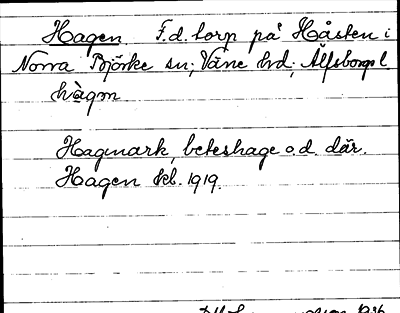 Hagen F.d. torp på Håsten i
Norra Björke sn; Väne hd; Älfsborgs l.
hàgm
Hagmark, beteshage o.d. där.
Hagen Jkb. 1919.